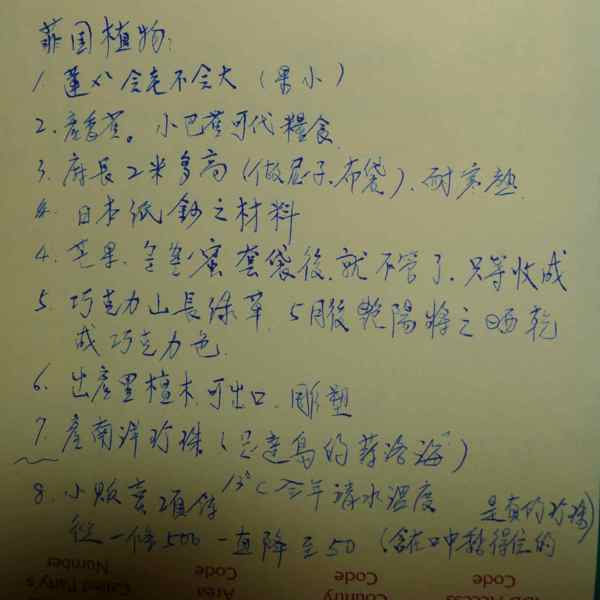 菲国植物:
1. 蓮 会宅不会大 (果小)
2. 產香蕉。小巴蕉可代糧食
3. 麻長2米多高 (做 子、布袋). 耐寒熱
日本紙鈔之材料
4. 芒果. 蜜套袋後.就不管了.只等收成
5. 巧克力山長绿草. 5月後艷陽將之晒乾
成巧克力色.
6. 出產黑檀木.可出口.雕塑
7. 產南洋珍珠 ( 達島的蘇洛海)
8. 小販卖項鍊 13°C 年 水温度 是真的珍珠)
從一條500一直降至50 (含在口中 得住的
Called Party's Number
Area Code
Country Code
Access Code